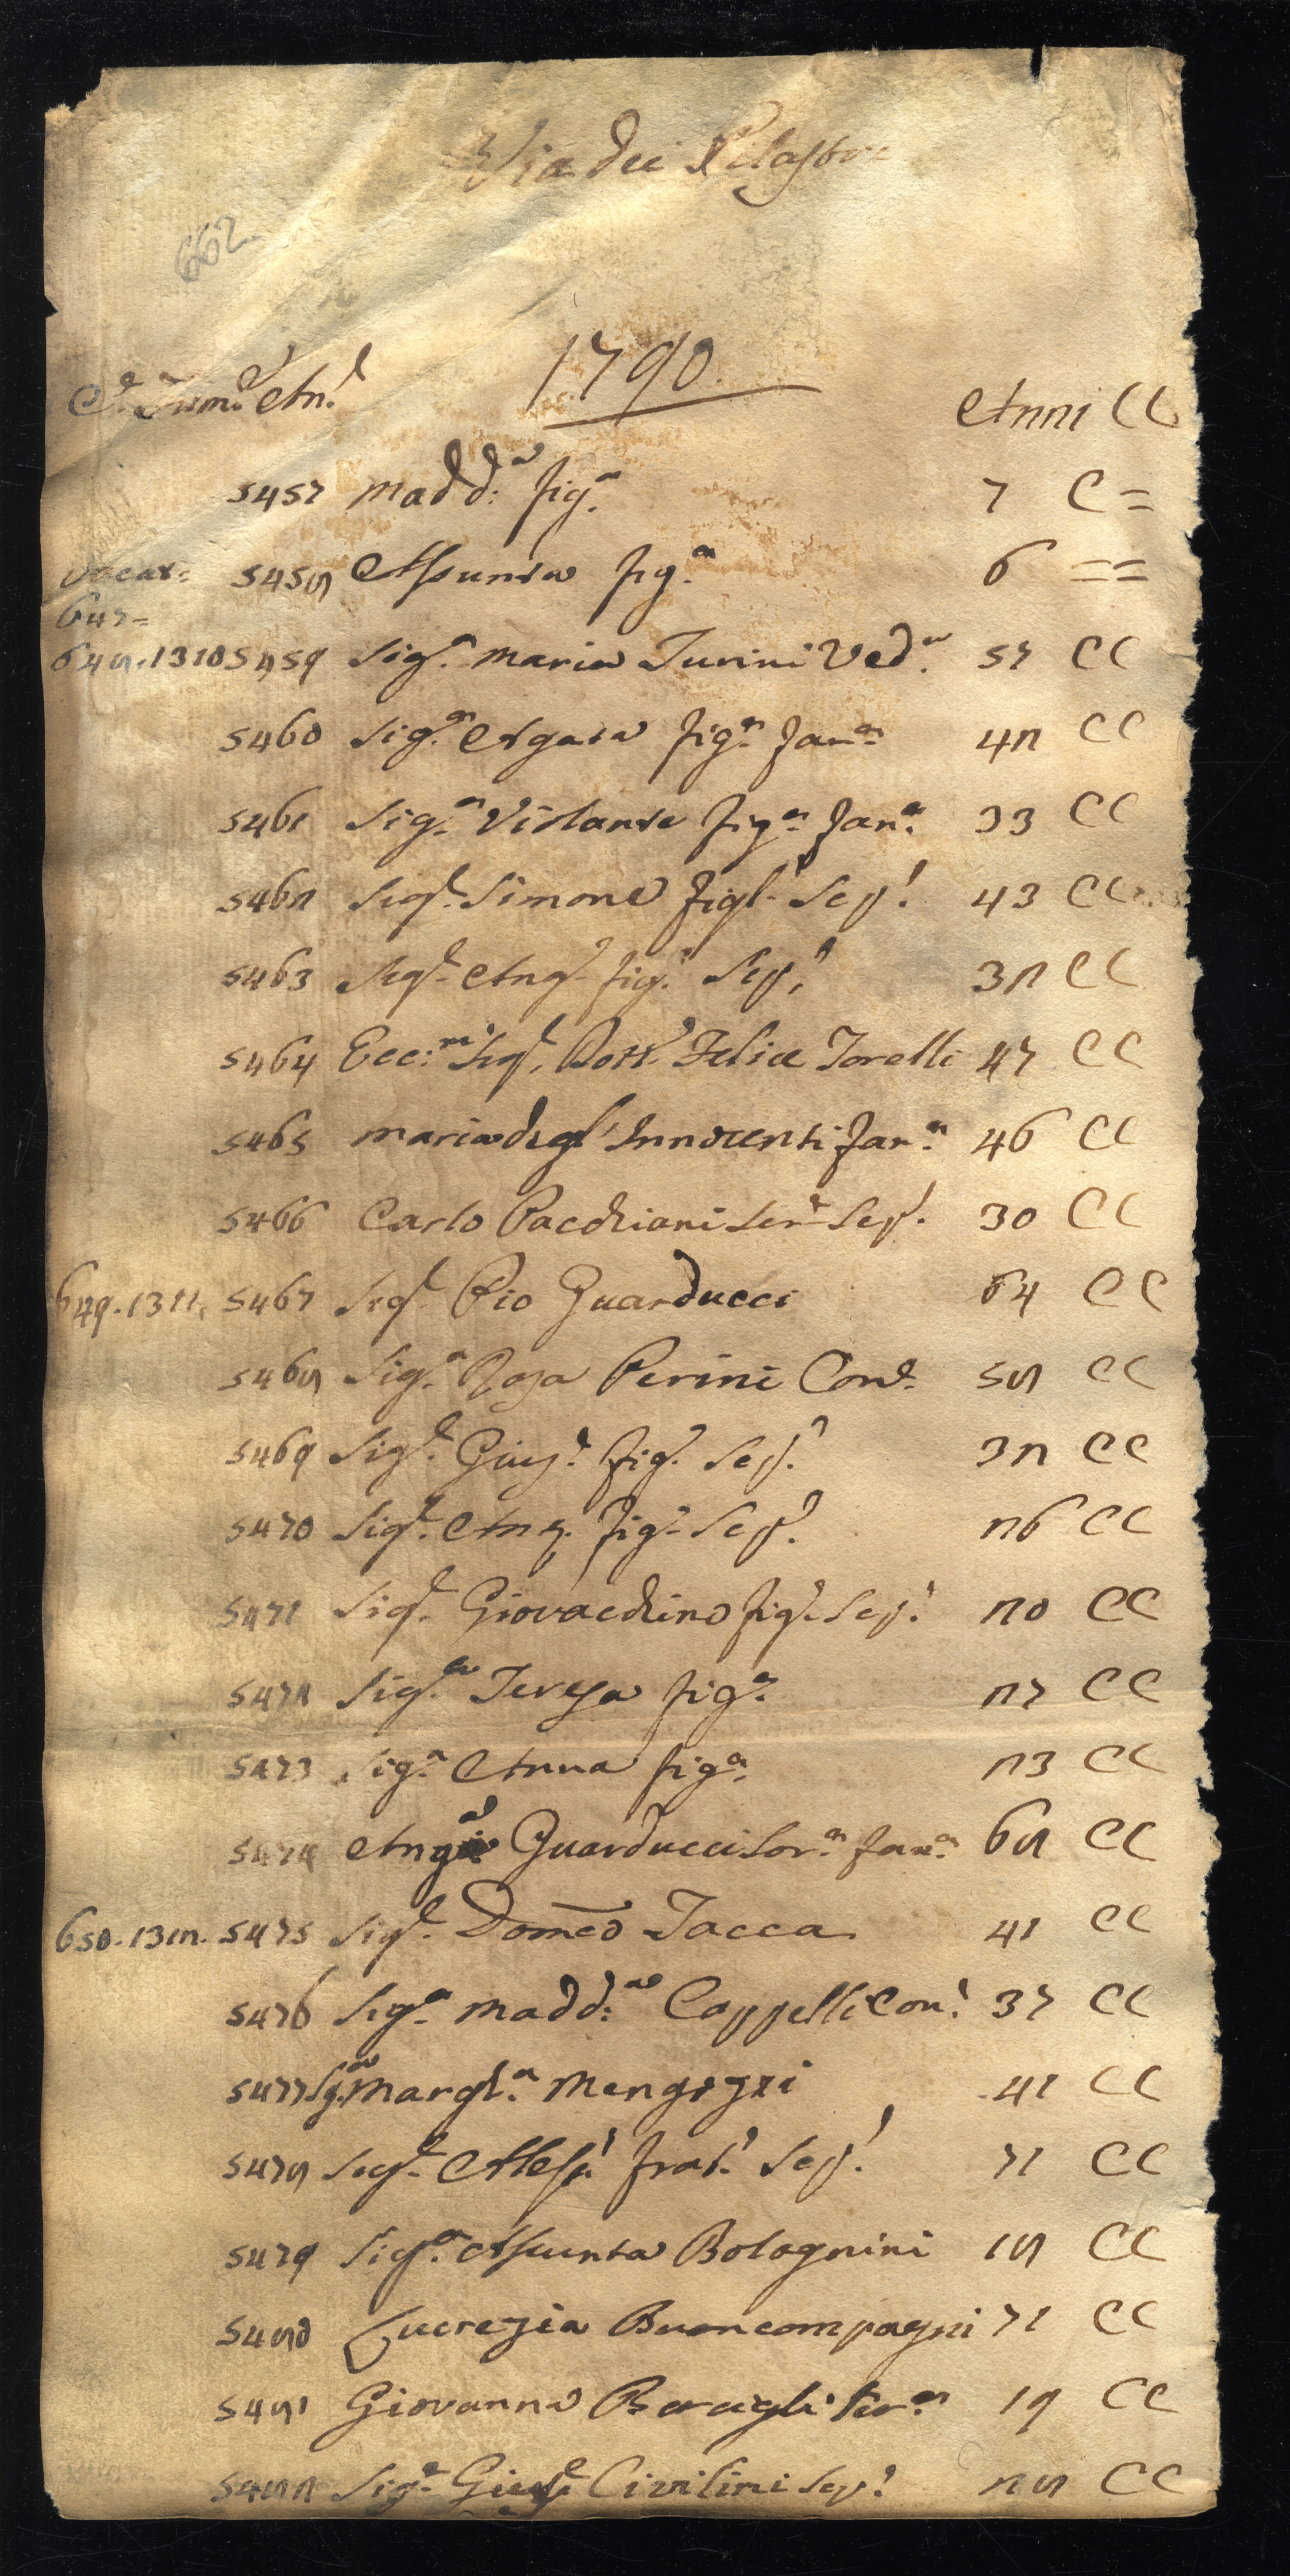 Via dei Pilastri
662
1790
C.e Fam.e An.e Anni CC
5457 Madd.a fig.a 7 C =
Vacat= 5458 Assunta fig.a 6 ==
647=
648. 1310 5459 Sig.a Maria Turini Ved.a 57 CC
5460 Sig.a Agata fig.a Fan.a 42 CC
5461 Sig.a Violante fig.a Fan.a 33 CC
5462 Sig.r Simone figl.o Scp.o 43 CC
5463 Sig.r Ang.o fig.o Scp.o 32 CC
5464 Ecc.mo Sig.r Dott.e Felice Torelli 47 CC
5465 Maria degl'Innocenti Fan.a 46 CC
5466 Carlo Pacchiani Ser.e Scp.o 30 CC
649. 1311. 5467 Sig.r Pio Guarducci 64 CC
5468 Sig.a Rosa Perini Con.e 58 CC
5469 Sig.r Gius.e fig.o Scp.o 32 CC
5470 Sig.r Ant.o fig.o Scp.o 26 CC
5471 Sig.r Giovacchino fig.o Scp.o 20 CC
5472 Sig.a Teresa fig.a 27 CC
5473 Sig.a Anna fig.a 23 CC
5474 Ang.a Guarducci Sor.a Fan.a 68 CC
650. 1312. 5475 Sig.r Domẽo Tacca 41 CC
5476 Sig.a Madd.a Cappelli Con.e 37 CC
5477 Sig.a Margh.a Mengozzi 41 CC
5478 Sig.r Aless.o Frat.o Scp.o 71 CC
5479 Sig.a Assunta Bolognini 18 CC
5480 Lucrezia Buoncompagni 71 CC
5481 Giovanna Baragli Ser.a 19 CC
5482 Sig.r Gius.e Civilini Scp.o 28 CC